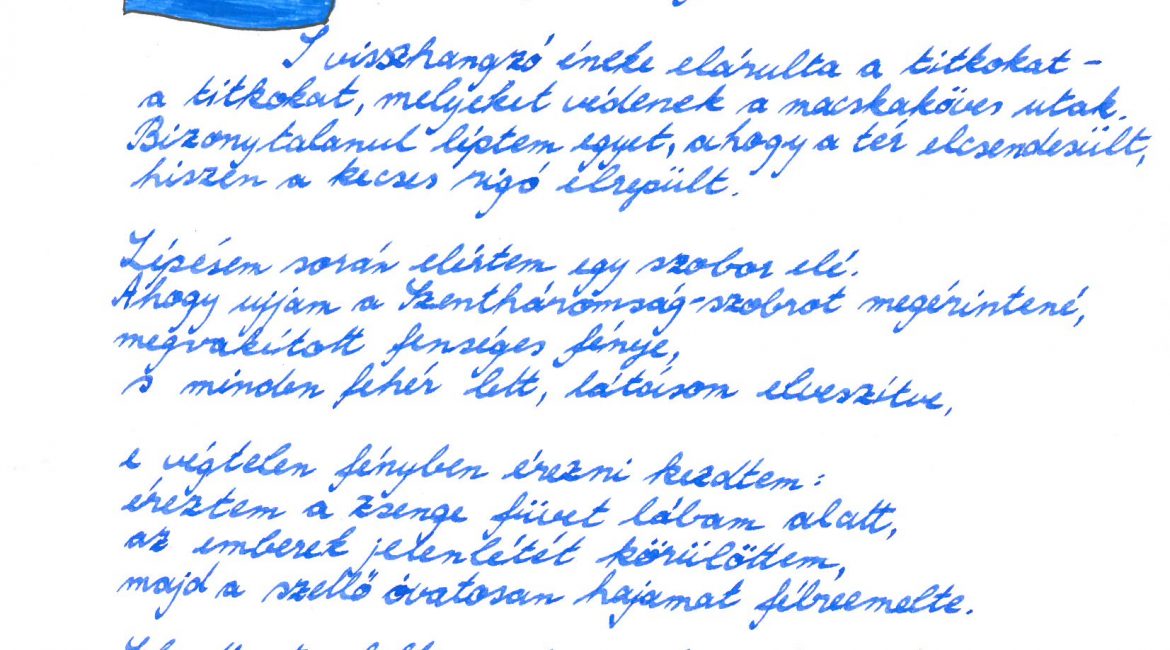 S visszhangzó éneke elárulta a titkokat -
a titkokat, melyeket védenek a macskaköves utak.
Bizonytalanul léptem egyet, ahogy a tér elcsendesült,
hiszen a kecses rigó elrepült.
Lépésem során elértem egy szobor elé.
Ahogy ujjam a Szentháromság-szobrot megérintené,
megvakított fenséges fénye,
s minden fehér lett, látásom elveszítve,
e végtelen fényben érezni kezdtem:
éreztem a zsenge füvet lábam alatt,
az emberek jelenlétét körülöttem,
majd a szellő óvatosan hajamat félreemelte.